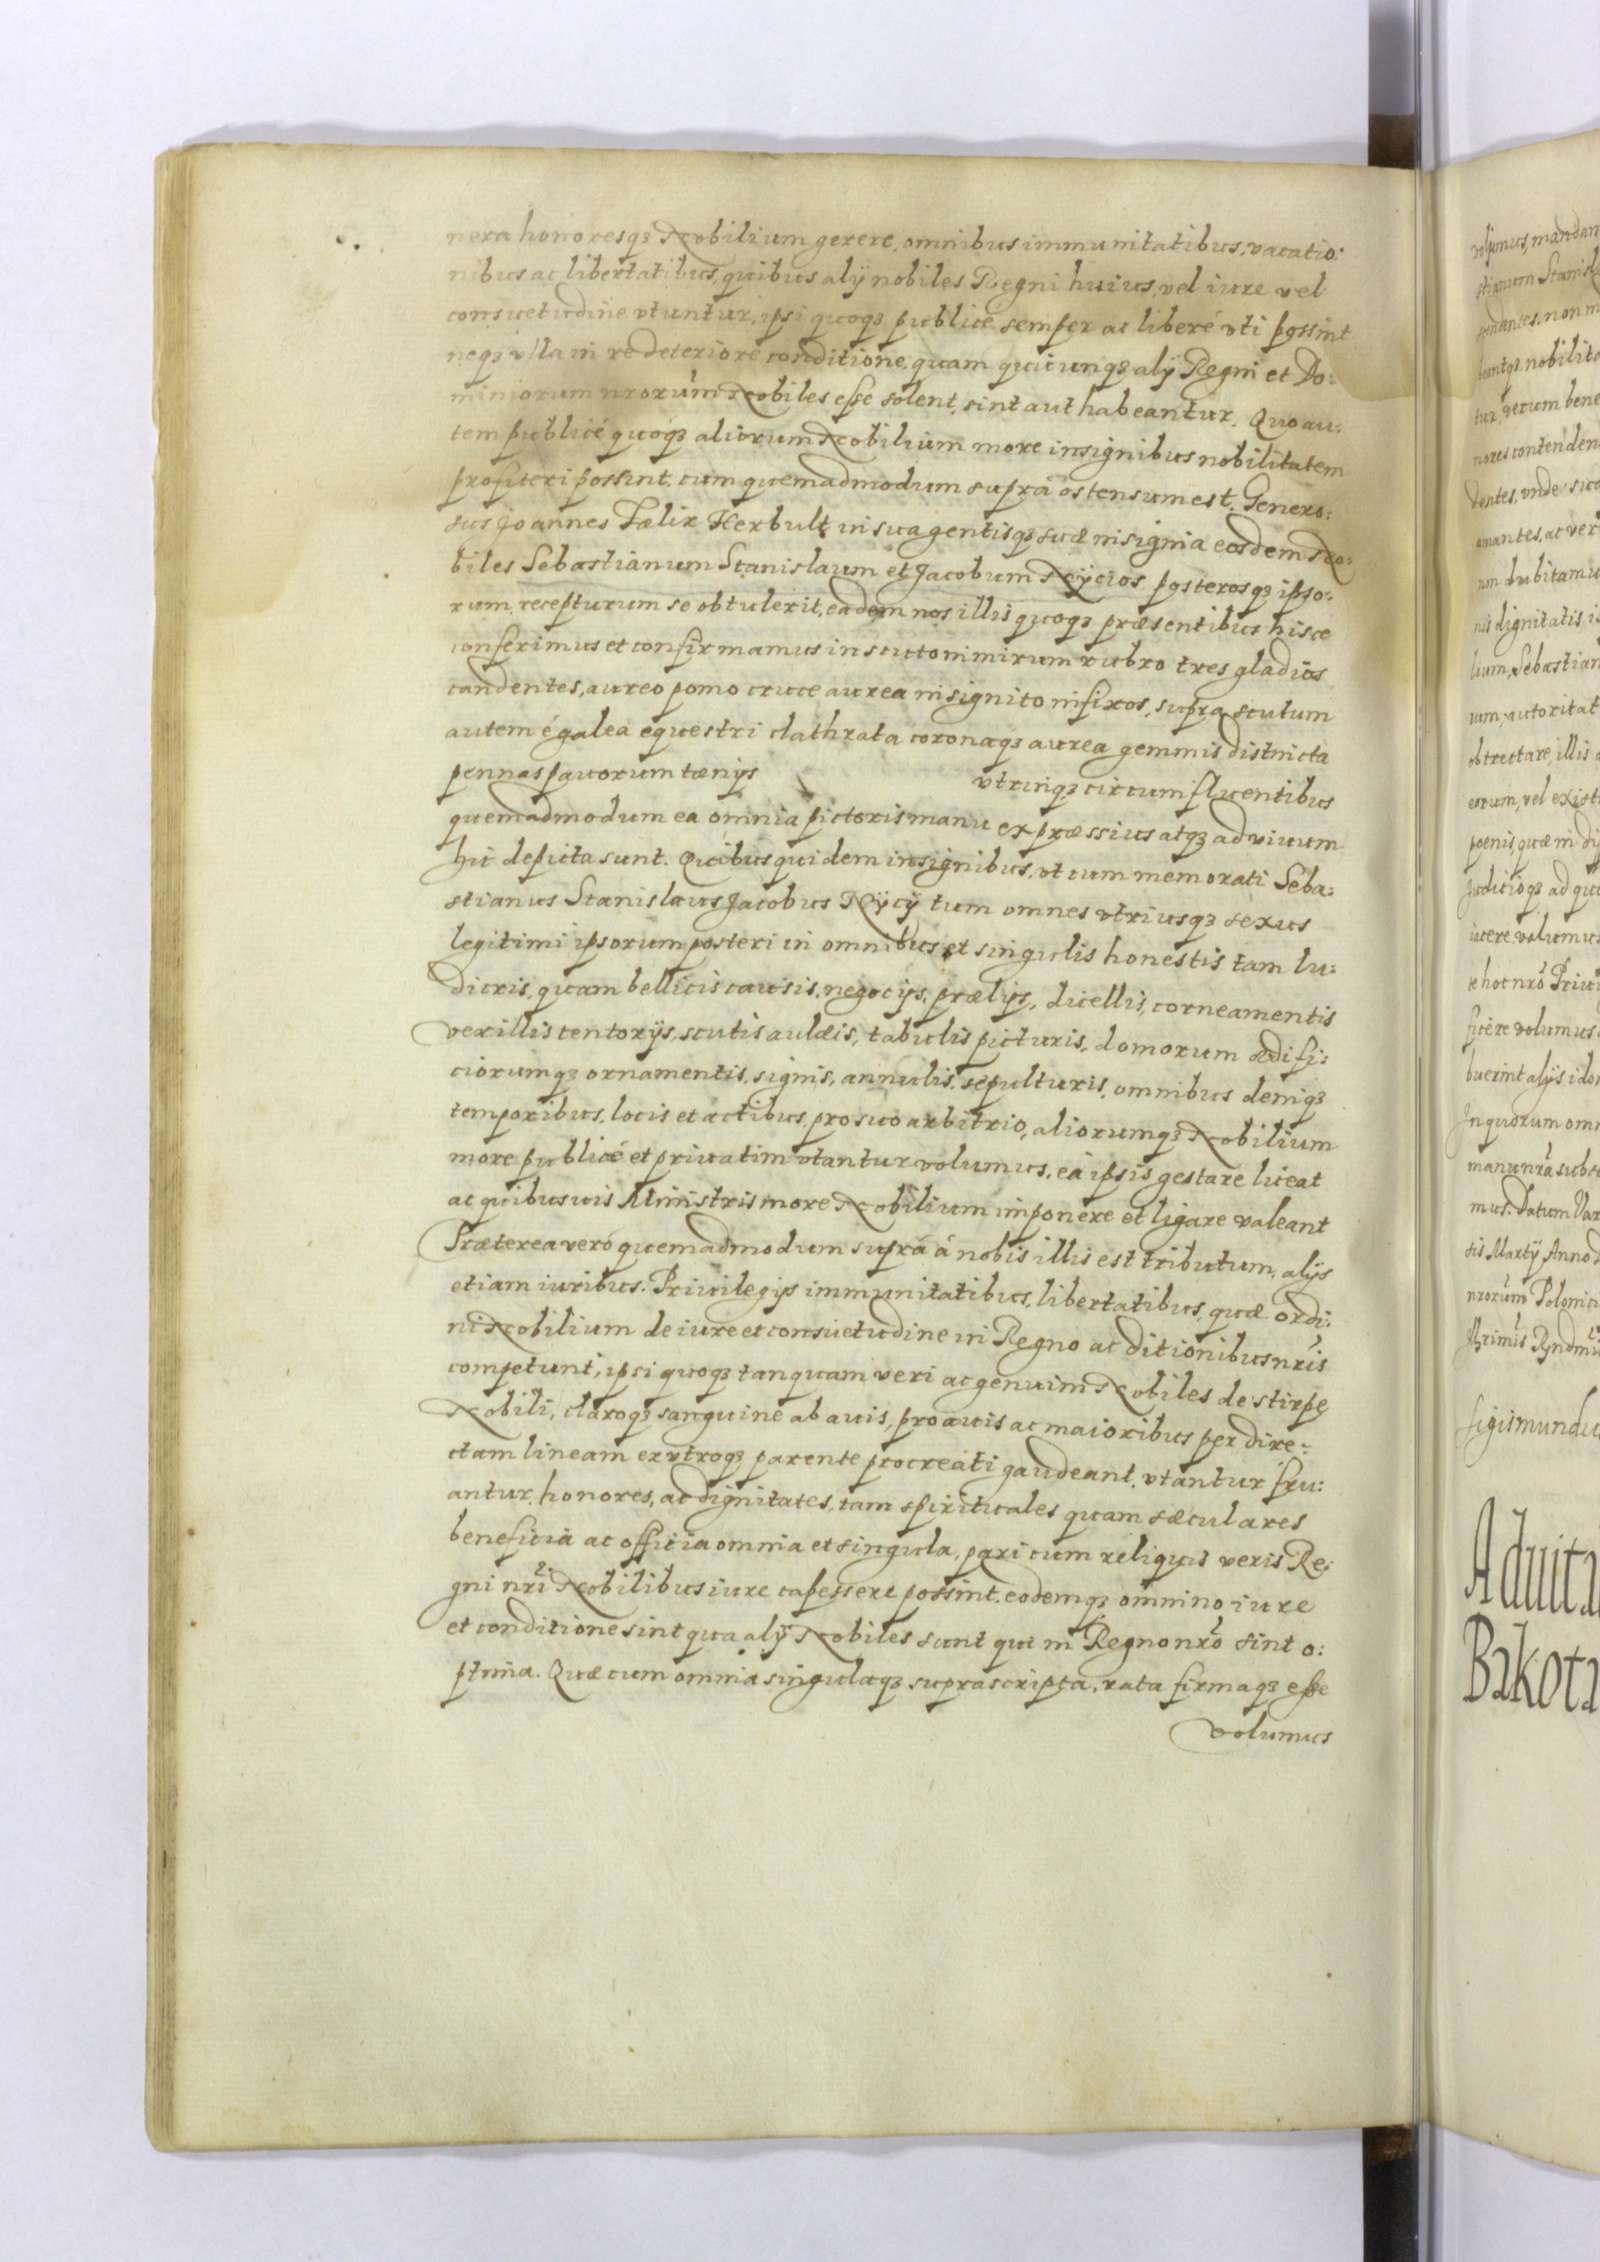 nera honoresqȝ Nobilium gerere, omnibus immunitatibus, vacatio:
nibus ac libertatibus, quibus alÿ nobiles Regni huius, vel iure vel
consuetudine vtuntur, ipsi quoqȝ publicè semper ac liberé vti possint
neqȝ vlla in re deteriore conditione, quam quicunqȝ alÿ Regni et Do:
miniorum nrorum Nobiles esse solent, sint aut habeantur. Quo au:
tem publicé quoqȝ aliorum Nobilium more insignibus nobilitatem
profiteri possint, cum quemadmodum suprà ostensum est. Genero:
sus Joannes Fælix Herbult in sua gentisqȝ suæ insignia eosdem No:
biles Sebastianum Stanislaum et Jacobum Nÿcios posterosqȝ ipso:
rum, recepturum se obtulerit, eadem nos illis quoqȝ præsentibus hisce
conferimus et confirmamus in scuto nimirum rubro tres gladios
candentes, aureo pomo cruce aurea insignito infixos, supra scutum
autem é galea equestri clathrata coronaqȝ aurea gemmis distincta
pennas pauorum tænÿs vtrinqȝ circumfluentibus
quemadmodum ea omnia pictoris manu expræssius atqȝ ad viuum
hic depicta sunt. Quibus quidem insignibus, vt cum memorati Seba:
stianus Stanislaus Jacobus Nÿcÿ tum omnes vtriusqȝ sexus
legitimi ipsorum posteri in omnibus et singulis honestis tam lu:
dicris, quam bellicis causis, negocÿs, prælÿs, duellis, corneamentis
vexillis tentorÿs, scutis aulæis, tabulis picturis, domorum ædifi:
ciorumqȝ ornamentis, signis, annulis, sepulturis, omnibus deniqȝ
temporibus, locis et actibus, pro suo arbitrio, aliorumqȝ Nobilium
more publicé et priuatim vtantur volumus, ea ipsis gestare liceat
ac quibusuis Ministris more Nobilium imponere et ligare valeant
Præterea veró quemadmodum suprá á nobis illis est tributum, alÿs
etiam iuribus. Priuilegÿs immunitatibus, libertatibus, quæ ordi:
ni Nobilium de iure et consuetudine in Regno ac ditionibus nris
competunt, ipsi quoqȝ tanquam veri ac genuini Nobiles de stirpe
Nobili, claroqȝ sanguine ab auis, proauis ac maioribus per dire:
ctam lineam ex vtroqȝ parente procreati gaudeant, vtantur fru:
antur, honores, ac dignitates, tam spirituales quam sæculares
beneficia ac officia omnia et singula, pari cum reliquis veris Re:
gni nri Nobilibus iure capessere possint, eodemqȝ omnino iure
et conditione sint qua alÿ Nobiles sunt qui in Regno nro sint o:
ptima. Quæ cum omnia singulaqȝ suprascripta, rata firmaqȝ esse
volumus
volumus, mandam
stianum Stanisl
nobilita
verum bene
nores contenden
dentes, vnde
amantes, ac ver
non dubitamu
nis dignitatis
lium, Sebastian
um, autoritat
obtrectare, illis
eorum, vel
pœnis, quæ in
Judicioqȝ ad
iacere volumus
hoc nro Priui
ficere volumus
buerint alÿs ido
In quorum omn
manu nra subs
mus. Datum Var
sis Martÿ Anno
nrorum Poloniæ
Sigismundus
Aduita
Bakota